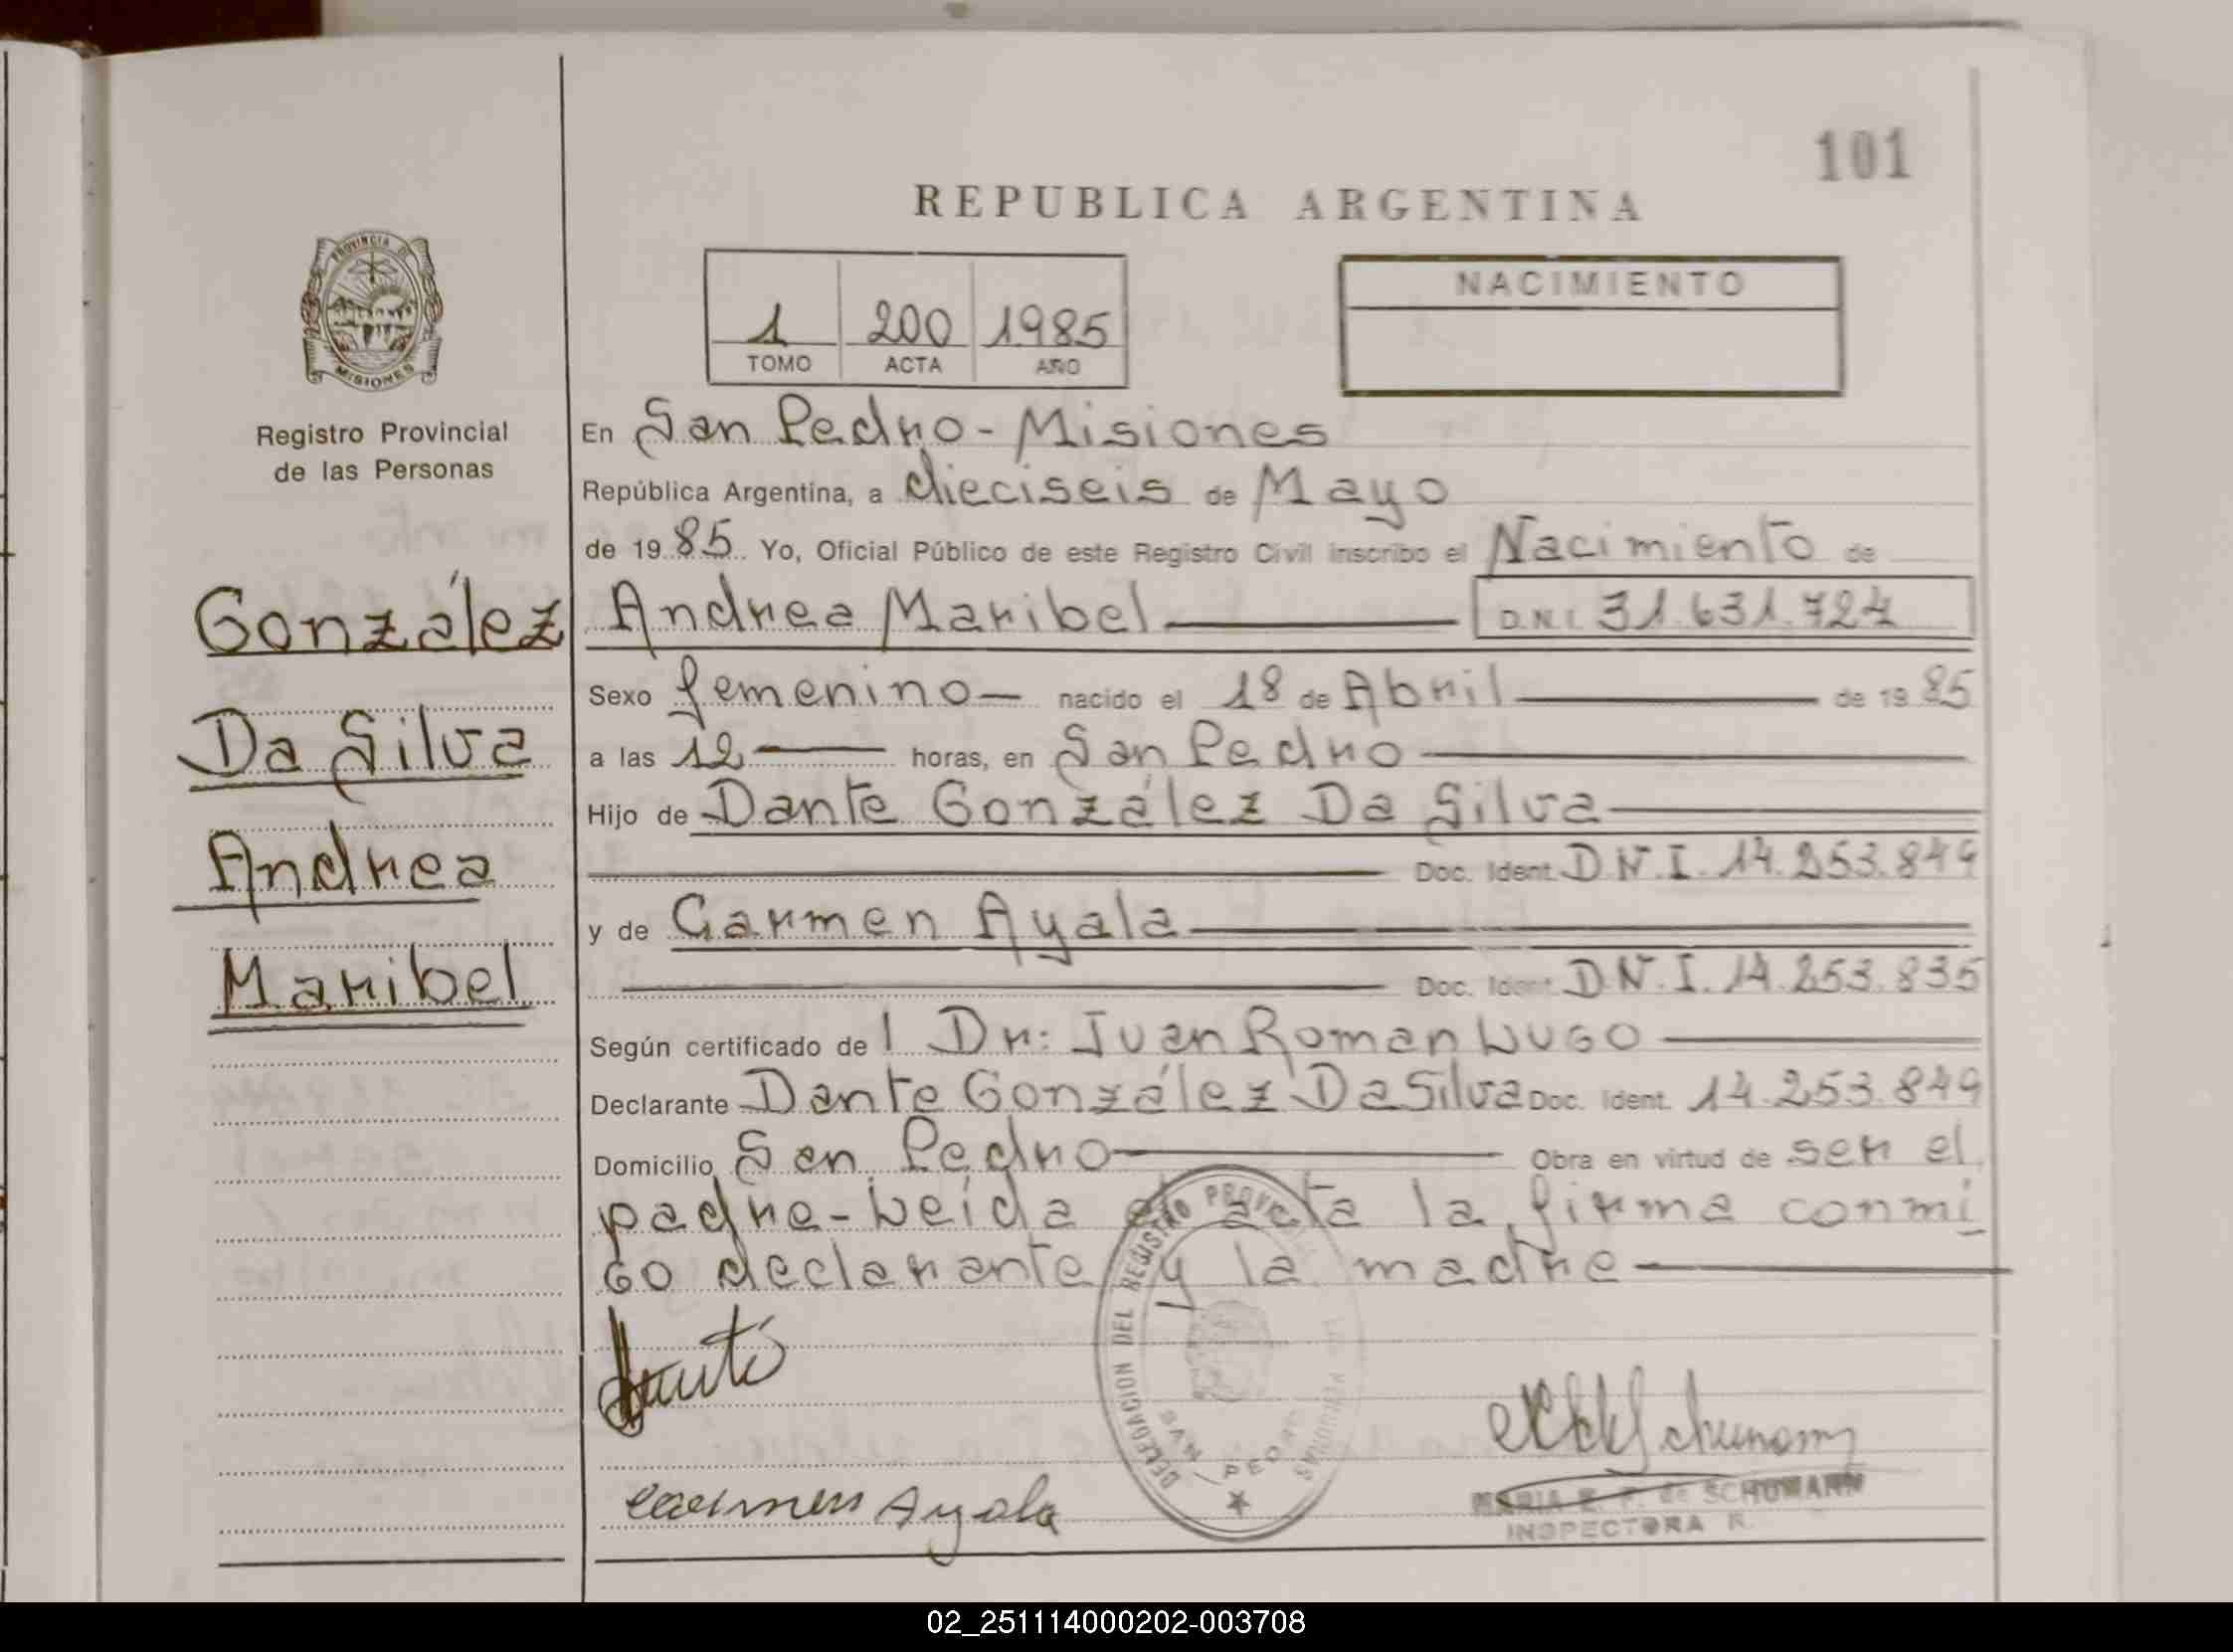 101
REPUBLICA ARGENTINA
PROVINCIA DE
MISIONES
1 200 1985
TOMO ACTA AÑO
NACIMIENTO
Registro Provincial
de las Personas
González
Da Silva
Andrea
Maribel
En San Pedro - Misiones
República Argentina, a dieciseis de Mayo
de 1985 Yo, Oficial Público de este Registro Civil inscribo el Nacimiento de
Andrea Maribel D.N.I. 31.631.724
Sexo femenino nacido el 18 de Abril de 1985
a las 12 horas, en San Pedro
Hijo de Dante González Da Silva
Doc. Ident. D.N.I. 14.253.849
y de Carmen Ayala
Doc. Ident. D.N.I. 14.253.835
Según certificado del Dr: Juan Roman Lugo
Declarante Dante González Da Silva Doc. Ident. 14.253.849
Domicilio San Pedro Obra en virtud de ser el
padre - Leída el acta la firma conmi
go declarante y la madre
DELEGACION DEL REGISTRO PROVINCIAL
SAN PEDRO
MISIONES
Carmen Ayala
MARIA E. F. de SCHUMANN
INSPECTORA R.
02_251114000202-003708